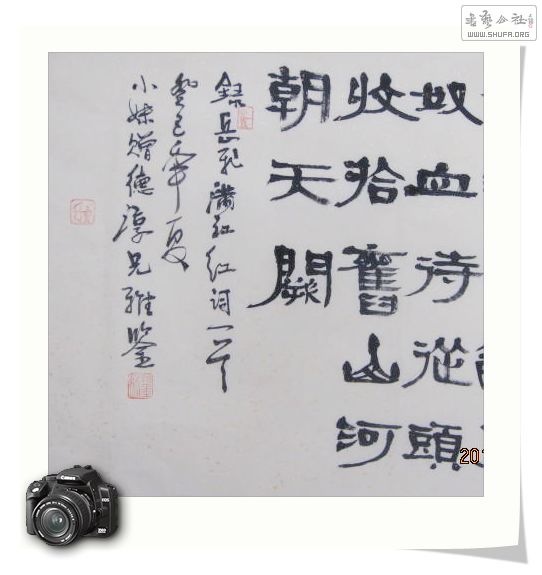 书艺公社
WWW.SHUFA.ORG
奴血待從頭
收拾舊山河
朝天闕
録岳飛滿江红词一首
癸巳年夏
小妹贈德淳兄雅鑒
201
Canon
EOS